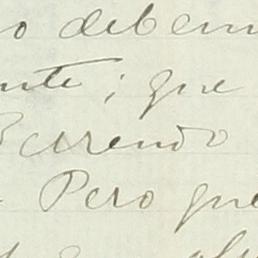 o debem
nte; que
Berrendo
Pero que